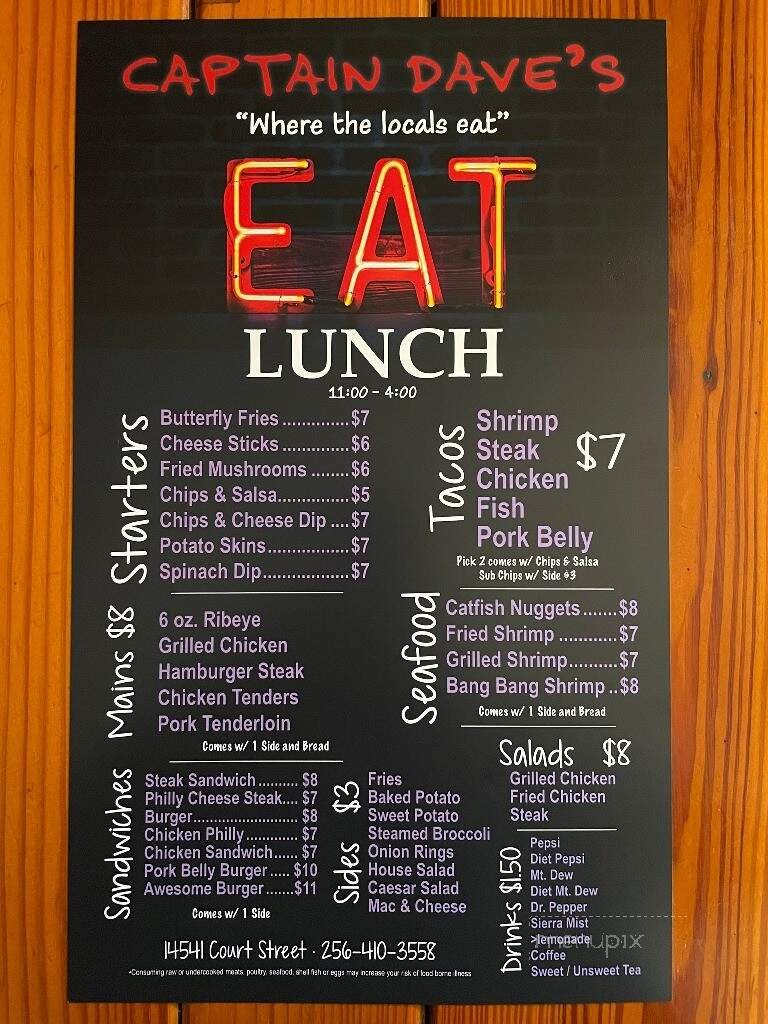 CAPTAIN DAVE'S
"Where the locals eat"
EAT
LUNCH
11:00 - 4:00
Starters
Butterfly Fries ..............$7
Cheese Sticks ..............$6
Fried Mushrooms ........$6
Chips & Salsa...............$5
Chips & Cheese Dip ....$7
Potato Skins.................$7
Spinach Dip..................$7
Tacos
$7
Shrimp
Steak
Chicken
Fish
Pork Belly
Pick 2 comes w/ Chips & Salsa
Sub Chips w/ Side $3
Mains $8
6 oz. Ribeye
Grilled Chicken
Hamburger Steak
Chicken Tenders
Pork Tenderloin
Comes w/ 1 Side and Bread
Seafood
Catfish Nuggets.......$8
Fried Shrimp ............$7
Grilled Shrimp..........$7
Bang Bang Shrimp ..$8
Comes w/ 1 Side and Bread
Sandwiches
Steak Sandwich.......... $8
Philly Cheese Steak.... $7
Burger.......................... $8
Chicken Philly............. $7
Chicken Sandwich...... $7
Pork Belly Burger ..... $10
Awesome Burger.......$11
Comes w/ 1 Side
Sides $3
Fries
Baked Potato
Sweet Potato
Steamed Broccoli
Onion Rings
House Salad
Caesar Salad
Mac & Cheese
Salads $8
Grilled Chicken
Fried Chicken
Steak
Drinks $1.50
Pepsi
Diet Pepsi
Mt. Dew
Diet Mt. Dew
Dr. Pepper
Sierra Mist
>lemonade
Coffee
Sweet / Unsweet Tea
menupix
14541 Court Street · 256-410-3558
*Consuming raw or undercooked meats, poultry, seafood, shell fish or eggs may increase your risk of food borne illness